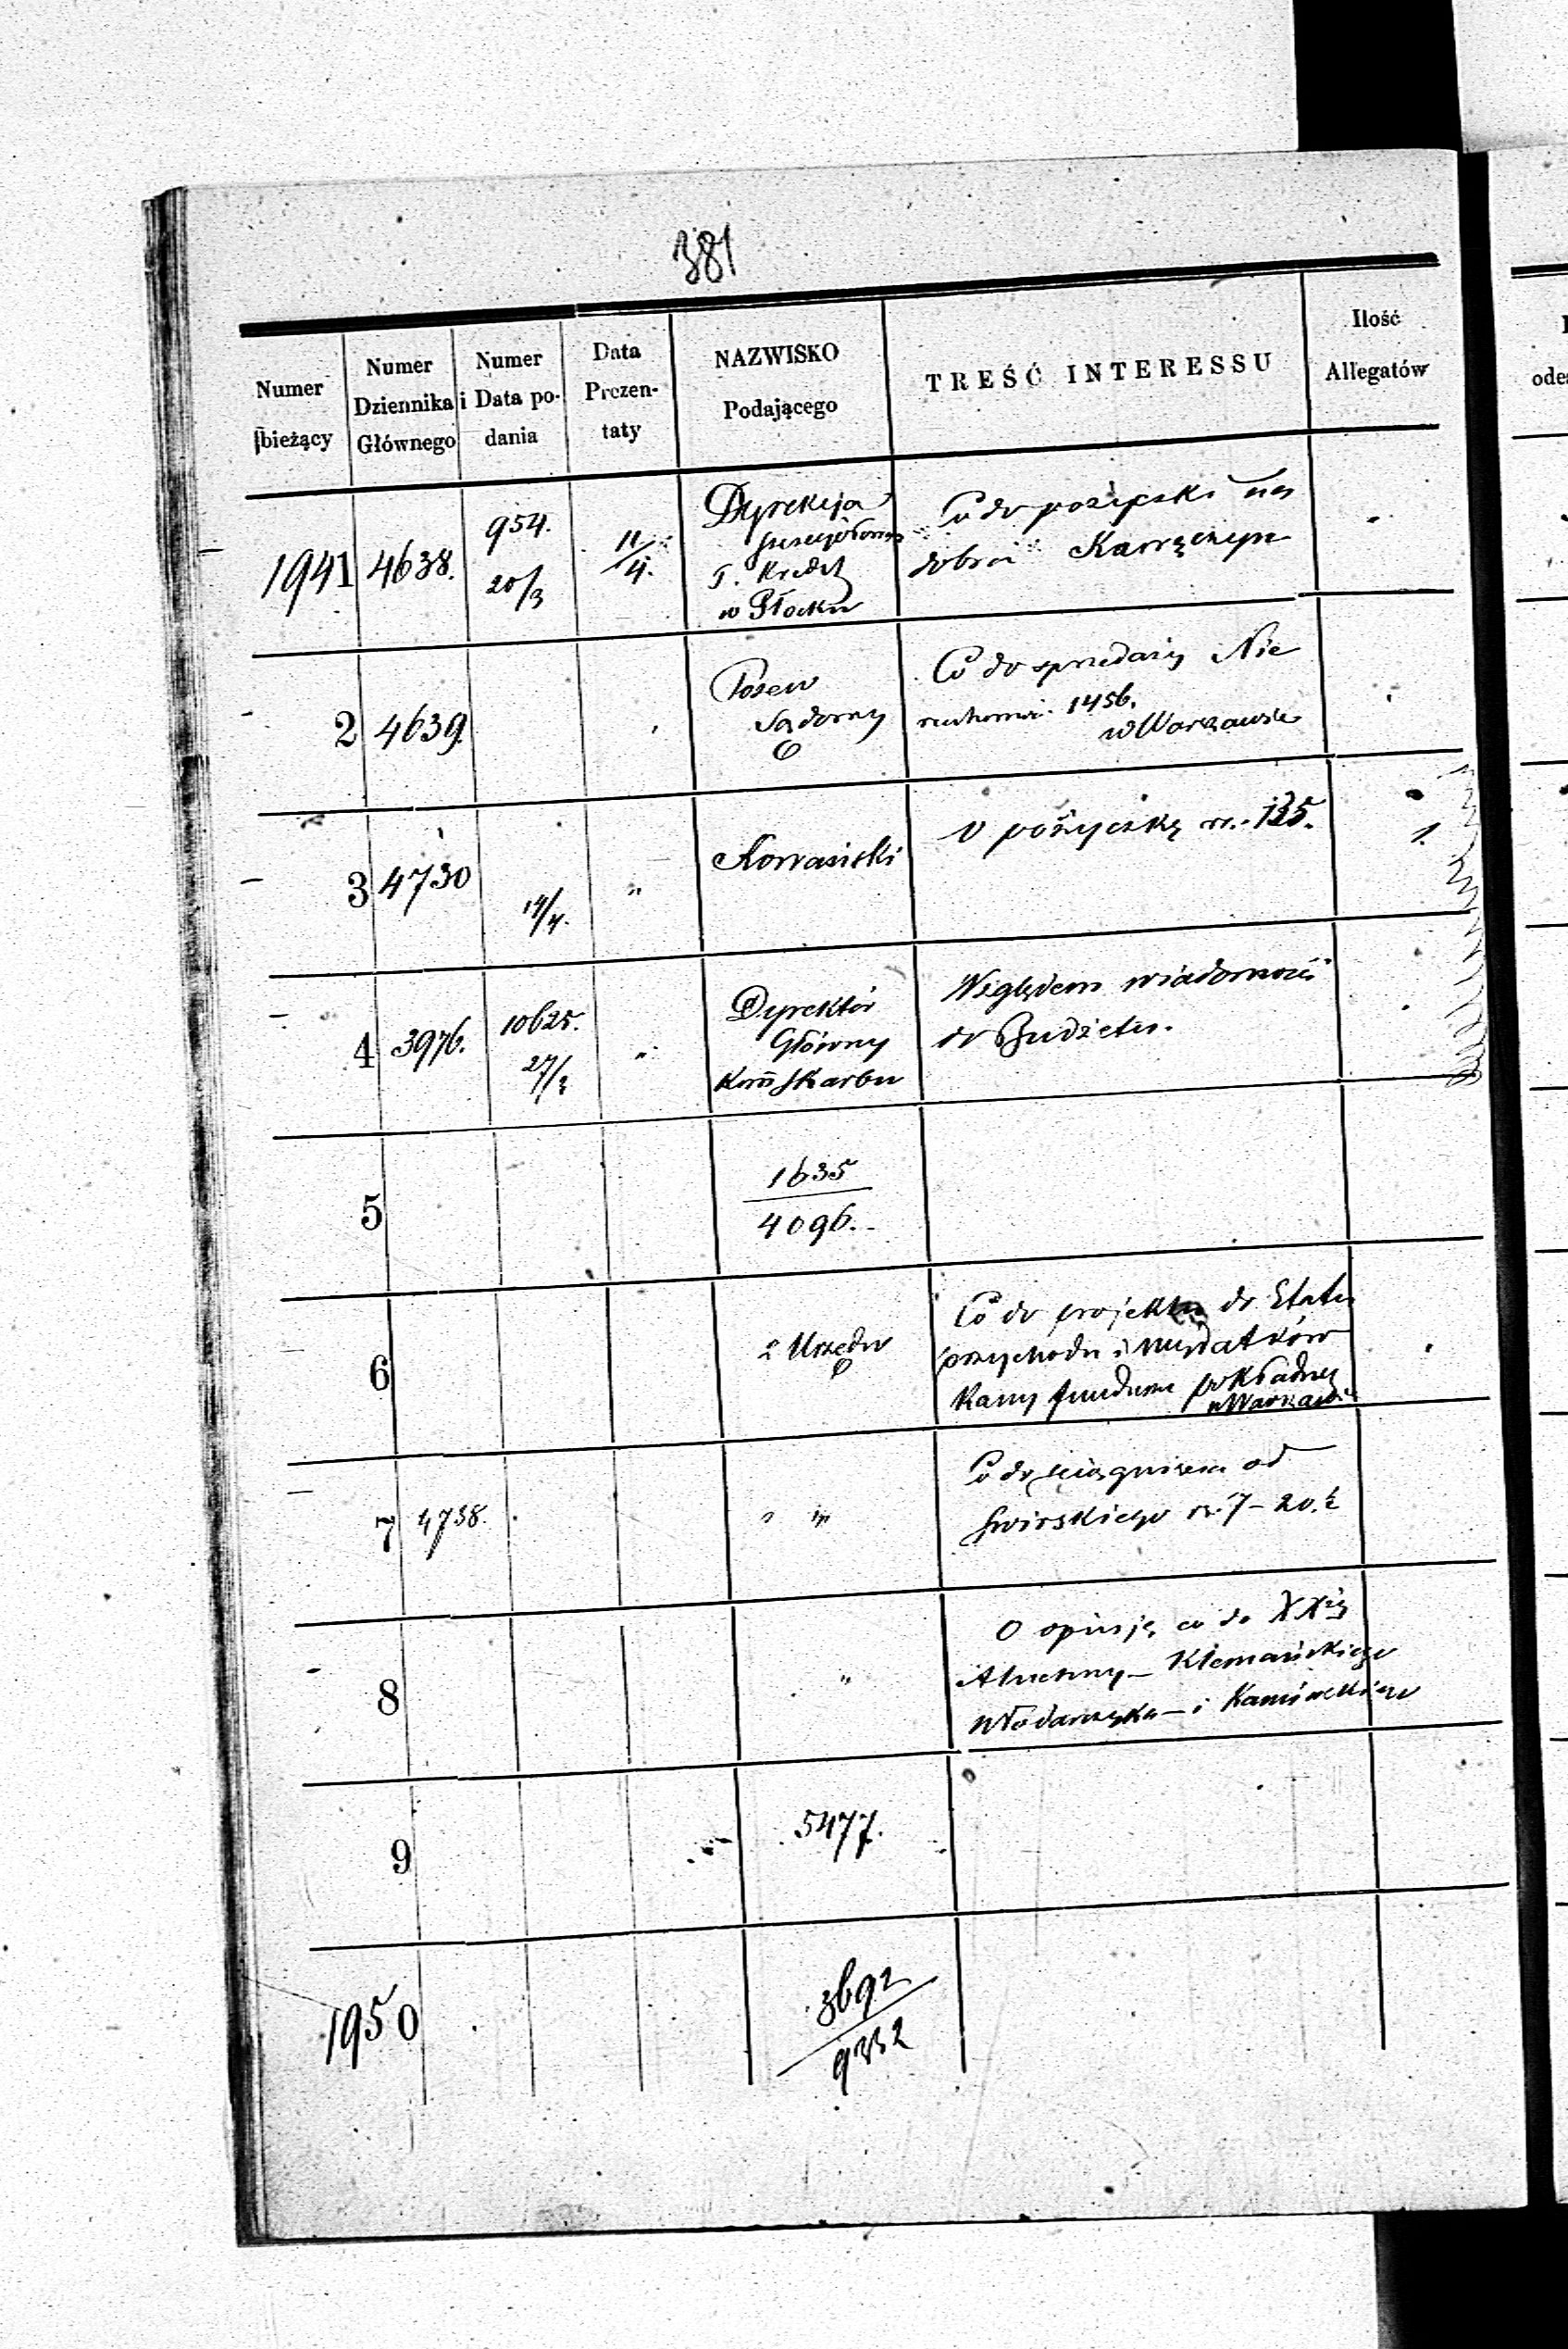 381
Numer bieżący
Numer Dziennika Głównego
Numer i Data podania
Data Prezentaty
NAZWISKO Podającego
TREŚĆ INTERESSU
Ilość Allegatów
1941 4638. 954. 20/3 11/4.
Dyrekcja
T. Kredyt
w Płocku
Co do pożyczki na
dobra
2 4639.
Pozew
Sądowy
Co do sprzedaży Nie
ruchomi. 1456.
w Warszawie
3 4730 14/4. "
Kowasiski
O pożyczkę rs. 135.
1.
4 3976. 10625. 27/3 "
Dyrektór
Główny
Koms Skarbu
Względem wiadomości
do Budżetu.
5
1635
4096.
6
z Urzędu
Co do projektu do Etatu
przychodu i wydatków
Kassy funduszu pokładnej
w Warszawie
7 4738.
" "
Co do ściągnięcia od
Swirskiego rs. 7 - 20.½
8
"
O opinję co do XX
Kłemańskiego
i Kamińskiego
9
5477.
1950
3692
9332